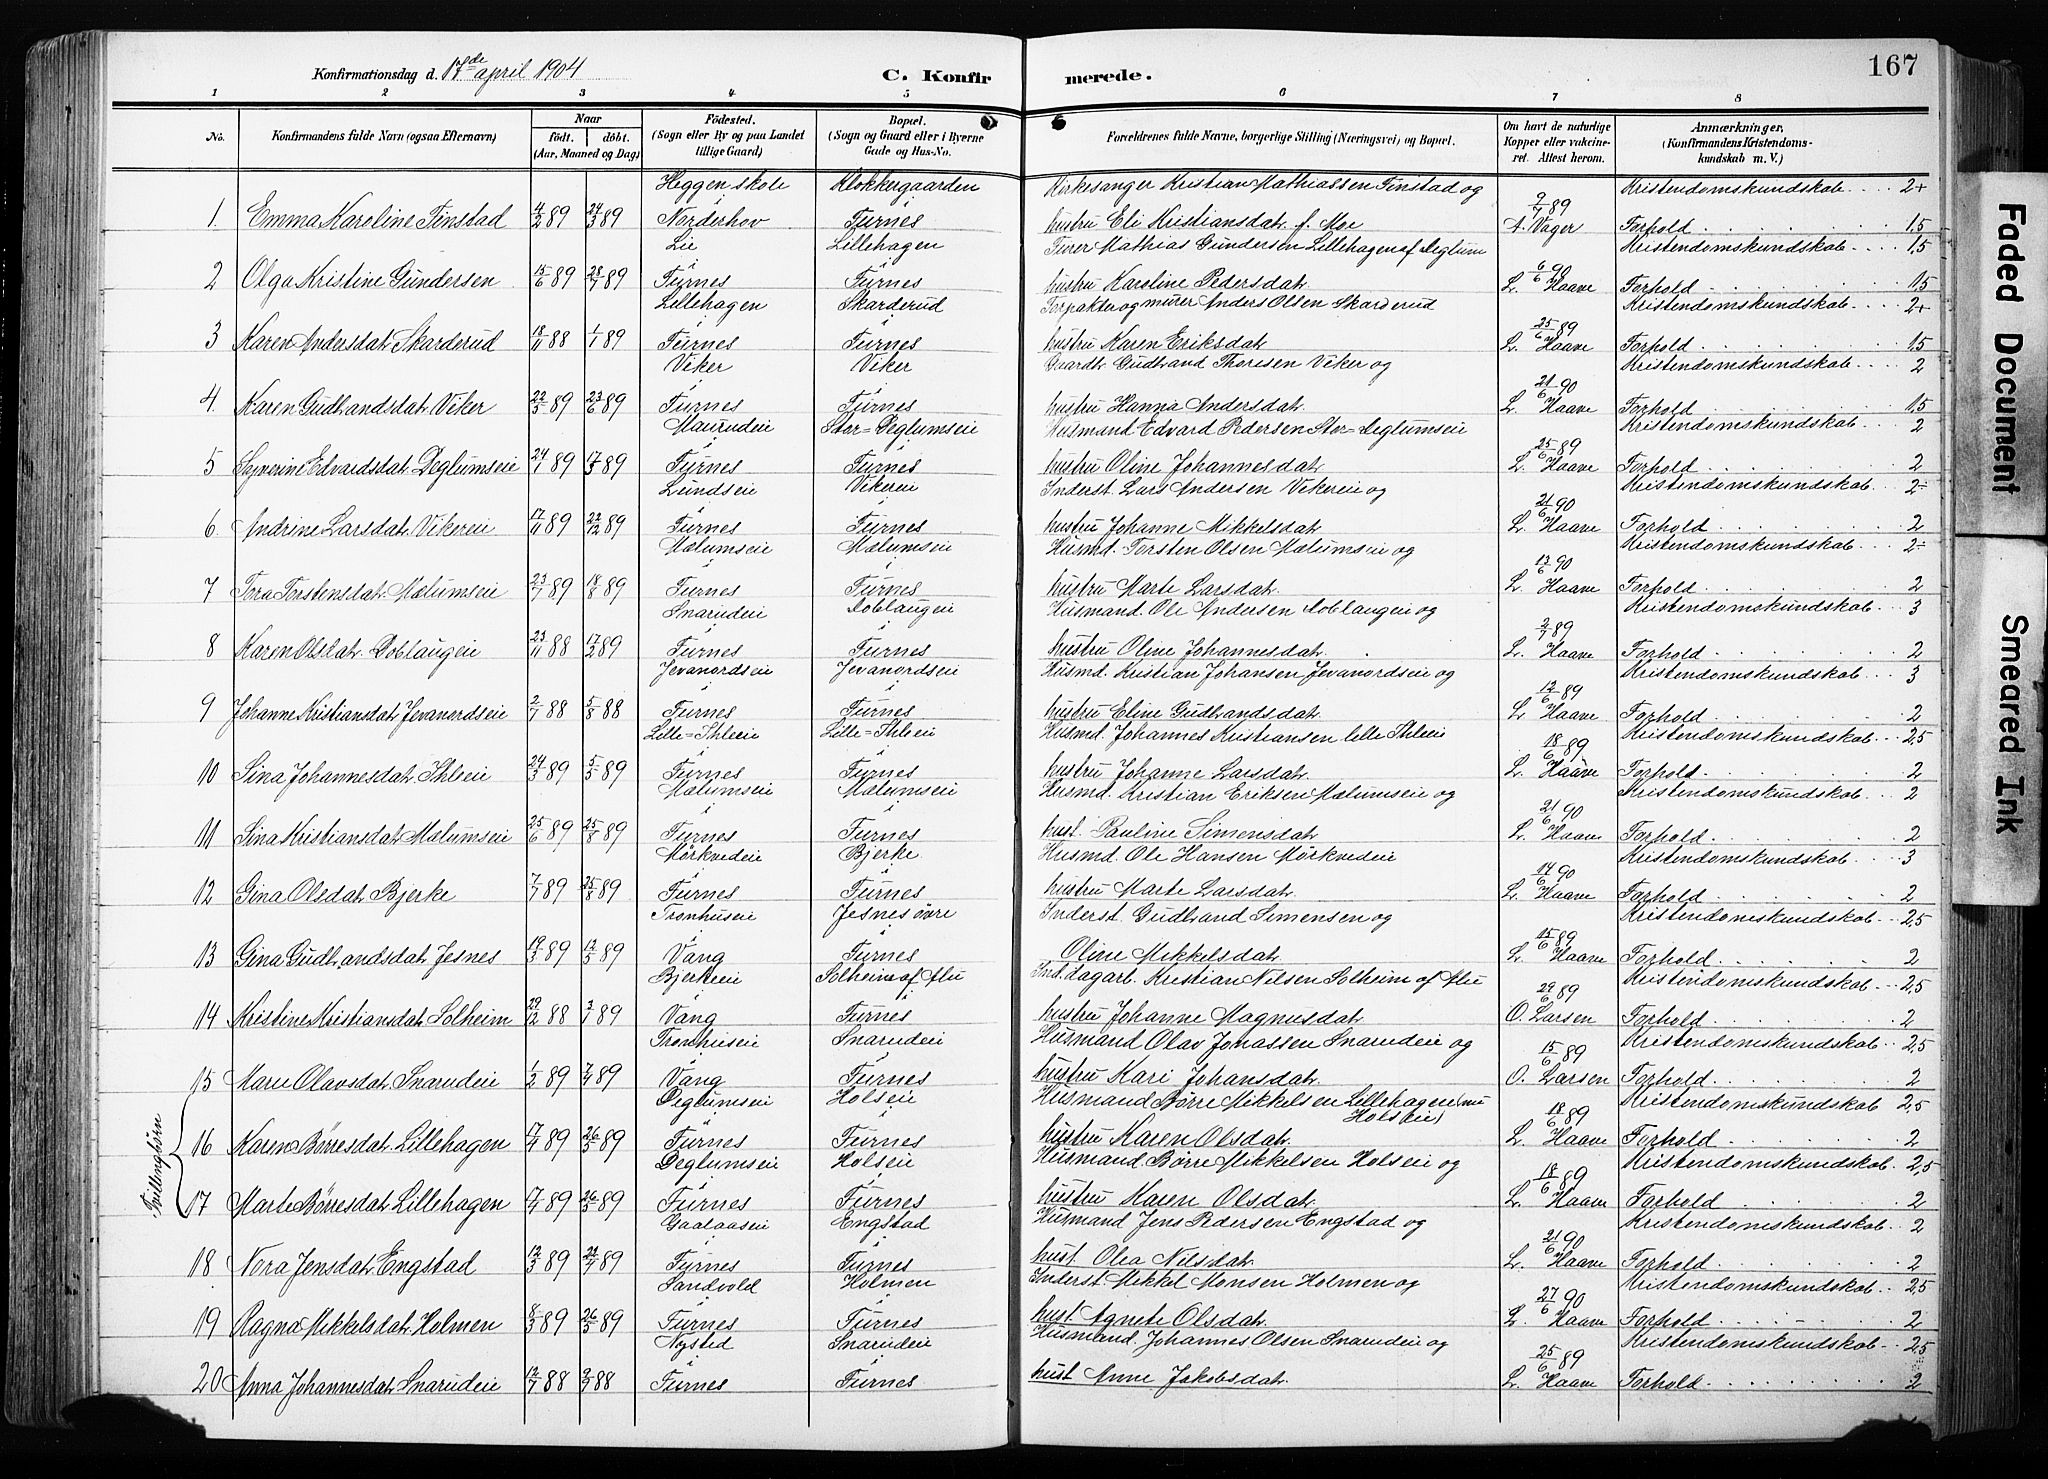 Konfirmationsdag d. 17de april 1904
C. Konfirmerede.
167
1 2 3 4 5 6 7 8
No. Konfirmandens fulde Navn (ogsaa Efternavn) Naar födt. döbt. (Aar, Maaned og Dag) Födested. (Sogn eller By og paa Landet tillige Gaard) Bopæl. (Sogn og Gaard eller i Byerne Gade og Hus-No. Forældrenes fulde Navne, borgerlige Stilling (Næringsvei) og Bopæl. Om havt de naturlige Kopper eller vakcineret. Attest herom. Anmærkninger, (Konfirmandens Kristendomskundskab m. V.)
Heggen skole Klokkergaarden Kirkesanger Kristian Mathiassen Finstad og 2/7 89 Kristendomskundskab 2+
1. Emma Karoline Finstad 4/2 89 24/3 89 Norderhov Furnes hustru Eli Kristiansdatr. f. Moe A. Vager Forhold 1,5
Lie Lillehagen Mathias Gundersen Lillehagen af Deglum Kristendomskundskab 1,5
2 Olga Kristine Gundersen 15/6 89 28/7 89 i Furnes i Furnes hustru Karoline Pedersdatr. 6/6 90 L. Haave Forhold 1,5
Lillehagen Skarderud Forpakter og murer Anders Olsen Skarderud Kristendomskundskab 2+
3 Karen Andersdatr. Skarderud 18/11 88 1/1 89 i Furnes i Furnes hustru Karen Eriksdatr. 25/6 89 L. Haave Forhold 1,5
Viker Viker Gaardbr. Gudbrand Thoresen Viker og Kristendomskundskab 2
4. Karen Gudbrandsdatr. Viker 22/5 89 23/6 89 i Furnes i Furnes hustru Hanna Andersdatr. 21/6 90 L. Haave Forhold 1,5
Maurudeie Stor=Deglumseie Husmand Edvard Pedersen Stor=Deglumseie Kristendomskundskab 2
5 Severine Edvardsdatr. Deglumseie 24/1 89 17/3 89 i Furnes i Furnes hustru Oline Johannesdatr. 25/6 89 L. Haave Forhold 2
Lundseie Vikereie Inderst. Lars Andersen Vikereie og Kristendomskundskab 2÷
6. Andrine Larsdatr. Vikereie 17/11 89 22/12 89 i Furnes i Furnes hustru Johanne Mikkelsdatr. 21/6 90 L. Haave Forhold 2
Mælumseie Mælumseie Husmd. Torsten Olsen Mælumseie og Kristendomskundskab 2÷
7 Tora Torstensdatr. Mælumseie 23/7 89 18/8 89 i Furnes i Furnes hustru Marte Larsdatr. 13/6 90 L. Haave Forhold 2
Snarudeie Doblaugeie Husmand. Ole Andersen Doblaugeie og Kristendomskundskab 3
8 Karen Olsdatr. Doblaugeie 23/11 88 17/2 89 i Furnes i Furnes hustru Oline Johannesdatr. 2/7 89 L. Haave Forhold 2
Jevanordseie Jevanordseie Husmd. Kristian Johansen Jevanordseie og Kristendomskundskab 3
9 Johanne Kristiansdatr. Jevanordseie 2/7 88 5/8 88 i Furnes i Furnes hustru Eline Gudbrandsdatr. 12/6 89 L. Haave Forhold 2
Lille=Ihleeie Lille=Ihleeie Husmd. Johannes Kristiansen lille Ihleeie Kristendomskundskab 2,5
10 Sina Johannesdatr. Ihleeie 24/3 89 5/5 89 i Furnes i Furnes hustru Johanne Larsdatr. 18/6 89 L. Haave Forhold 2
Mælumseie Mælumseie Husmd. Kristian Eriksen Mælumseie og Kristendomskundskab 2
11 Sina Kristiansdatr. Mælumseie 25/6 89 25/8 89 i Furnes i Furnes hust. Pauline Simensdatr. 21/6 90 L. Haave Forhold 2
Mörkvedeie Bjerke Husmd. Ole Hansen Mörkvedeie Kristendomskundskab 3
12 Gina Olsdatr. Bjerke 7/7 89 25/8 89 i Furnes i Furnes hustru Marte Larsdatr. 14/6 90 L. Haave Forhold 2
Tronhuseie Jesnes övre Inderst. Gudbrand Simensen og Kristendomskundskab 2,5
13 Gina Gudbrandsdatr. Jesnes 19/3 89 12/5 89 i Vang i Furnes Oline Mikkelsdatr. 15/6 89 L. Haave Forhold 2
Bjerkeeie Solheim af Ind. dagarb. Kristian Nilsen Solheim af Kristendomskundskab 2,5
14 Kristine Kristiansdatr. Solheim 29/12 88 3/1 89 i Vang i Furnes hustru Johanne Magnusdatr. 29/6 89 O. Larsen Forhold 2
Tronhuseie Snarudeie Husmand Olav Jonassen Snarudeie og Kristendomskundskab 2,5
15 Marie Olavsdatr. Snarudeie 1/2 89 7/4 89 i Vang i Furnes hustru Kari Johansdatr. 15/6 89 O. Larsen Forhold 2
Deglumseie Holseie Husmand Börre Mikkelsen Lillehagen (nu Holseie) Kristendomskundskab 2,5
Tvillingbörn
16 Karen Börresdatr. Lillehagen 17/4 89 26/5 89 i Furnes i Furnes hustru Karen Olsdatr. 18/6 89 L. Haave Forhold 2
Deglumseie Holseie Husmand Börre Mikkelsen Holseie og Kristendomskundskab 2,5
17 Marte Börresdatr. Lillehagen 17/4 89 26/5 89 i Furnes i Furnes hustru Karen Olsdatr. 18/6 89 L. Haave Forhold 2
Gaalaaseie Engstad Husmand Jens Pedersen Engstad og Kristendomskundskab 2
18 Nora Jensdatr. Engstad 12/3 89 21/4 89 i Furnes i Furnes hust. Olea Nilsdatr. 21/6 90 L. Haave Forhold 2
Sandvold Holmen Inderst. Mikkel Monsen Holmen og Kristendomskundskab 2,5
19 Ragna Mikkelsdatr. Holmen 8/3 89 26/5 89 i Furnes i Furnes hust. Agnete Olsdatr. 27/6 90 L. Haave Forhold 2
Nysted Snarudeie Husmand. Johannes Olsen Snarudeie og Kristendomskundskab 2,5
20 Anna Johannesdatr. Snarudeie 12/7 88 88 i Furnes i Furnes hust Anne Jakobsdatr. 25/6 89 L. Haave Forhold 2
Faded Document
Smeared Ink